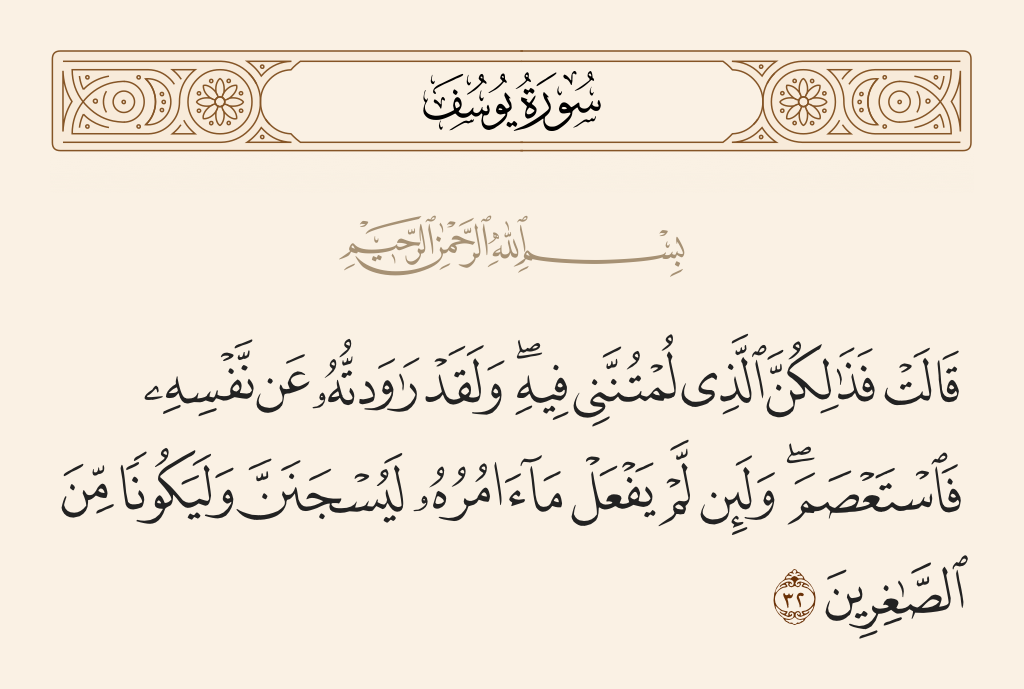 سُورَةُ يُوسُفَ
بِسْمِ ٱللَّهِ ٱلرَّحْمَٰنِ ٱلرَّحِيمِ
قَالَتْ فَذَٰلِكُنَّ ٱلَّذِى لُمْتُنَّنِى فِيهِ ۖ وَلَقَدْ رَٰوَدتُّهُۥ عَن نَّفْسِهِۦ
فَٱسْتَعْصَمَ ۖ وَلَئِن لَّمْ يَفْعَلْ مَآ ءَامُرُهُۥ لَيُسْجَنَنَّ وَلَيَكُونًا مِّنَ
ٱلصَّٰغِرِينَ ٣٢